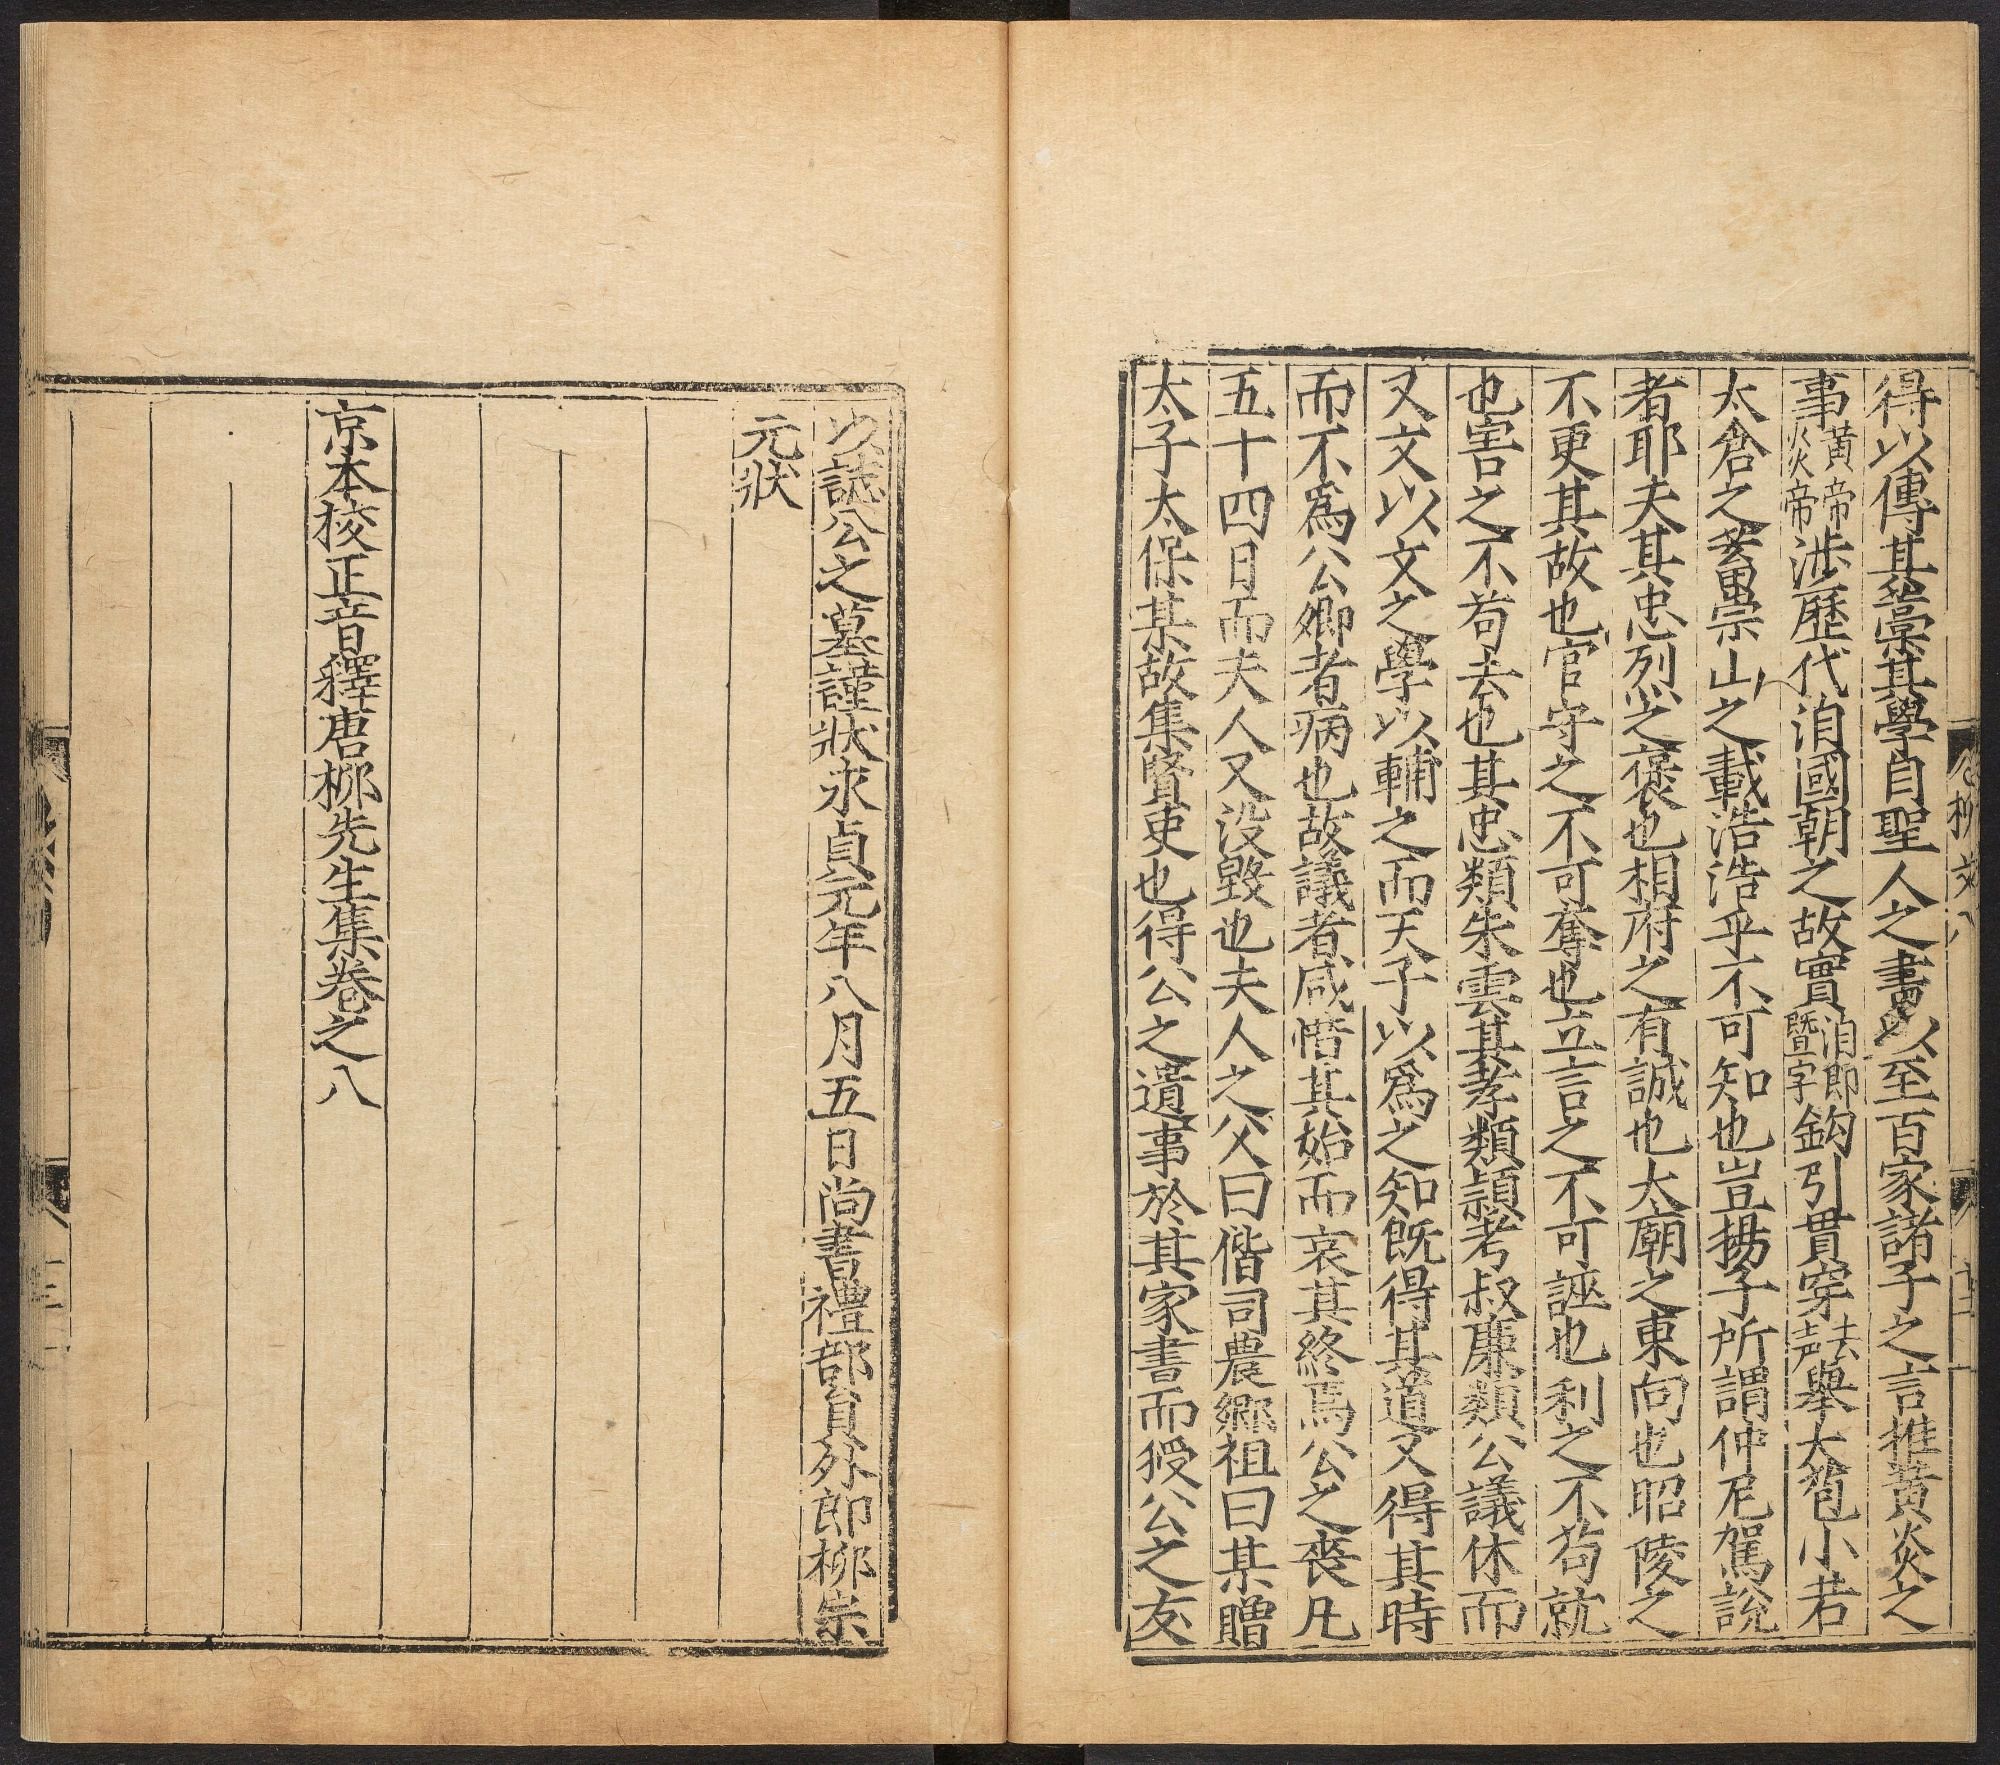 得以傳其藁其學自聖人之書以至百家諸子之言推黃炎之
事黃帝炎帝涉歷代洎國朝之故實洎即曁字鈎引貫穿去聲舉大苞小若
太倉之蓄崇山之載浩浩乎不可知也豈揚子所謂仲尼駕說
者耶夫其忠烈之褒也相府之有誠也太廟之東向也昭陵之
不更其故也官守之不可奪也立言之不可誣也利之不苟就
也害之不苟去也其忠類朱雲其孝類潁考叔廉類公議休而
又文以文之學以輔之而天子以爲之知既得其道又得其時
而不爲公卿者病也故議者咸惜其始而哀其終焉公之喪凡
五十四日而夫人又没毀也夫人之父曰偕司農卿祖曰某贈
太子太保某故集賢吏也得公之遺事於其家書而授公之友
柳文八
十二
以誌公之墓謹狀永貞元年八月五日尚書禮部員外郎柳宗
元狀
京本校正音釋唐柳先生集卷之八